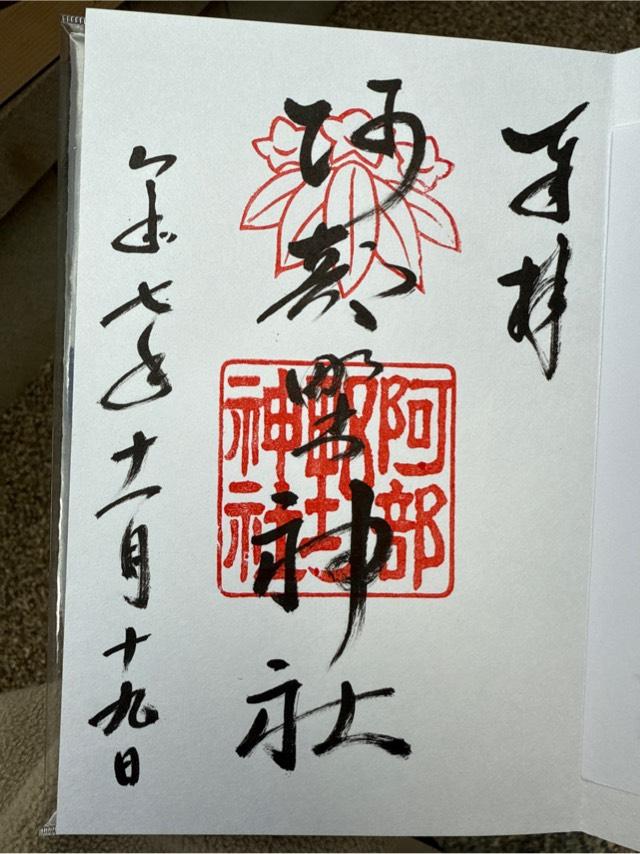 奉拝
阿部野神社
阿部
野
神社
令和七年
十一月
十九日